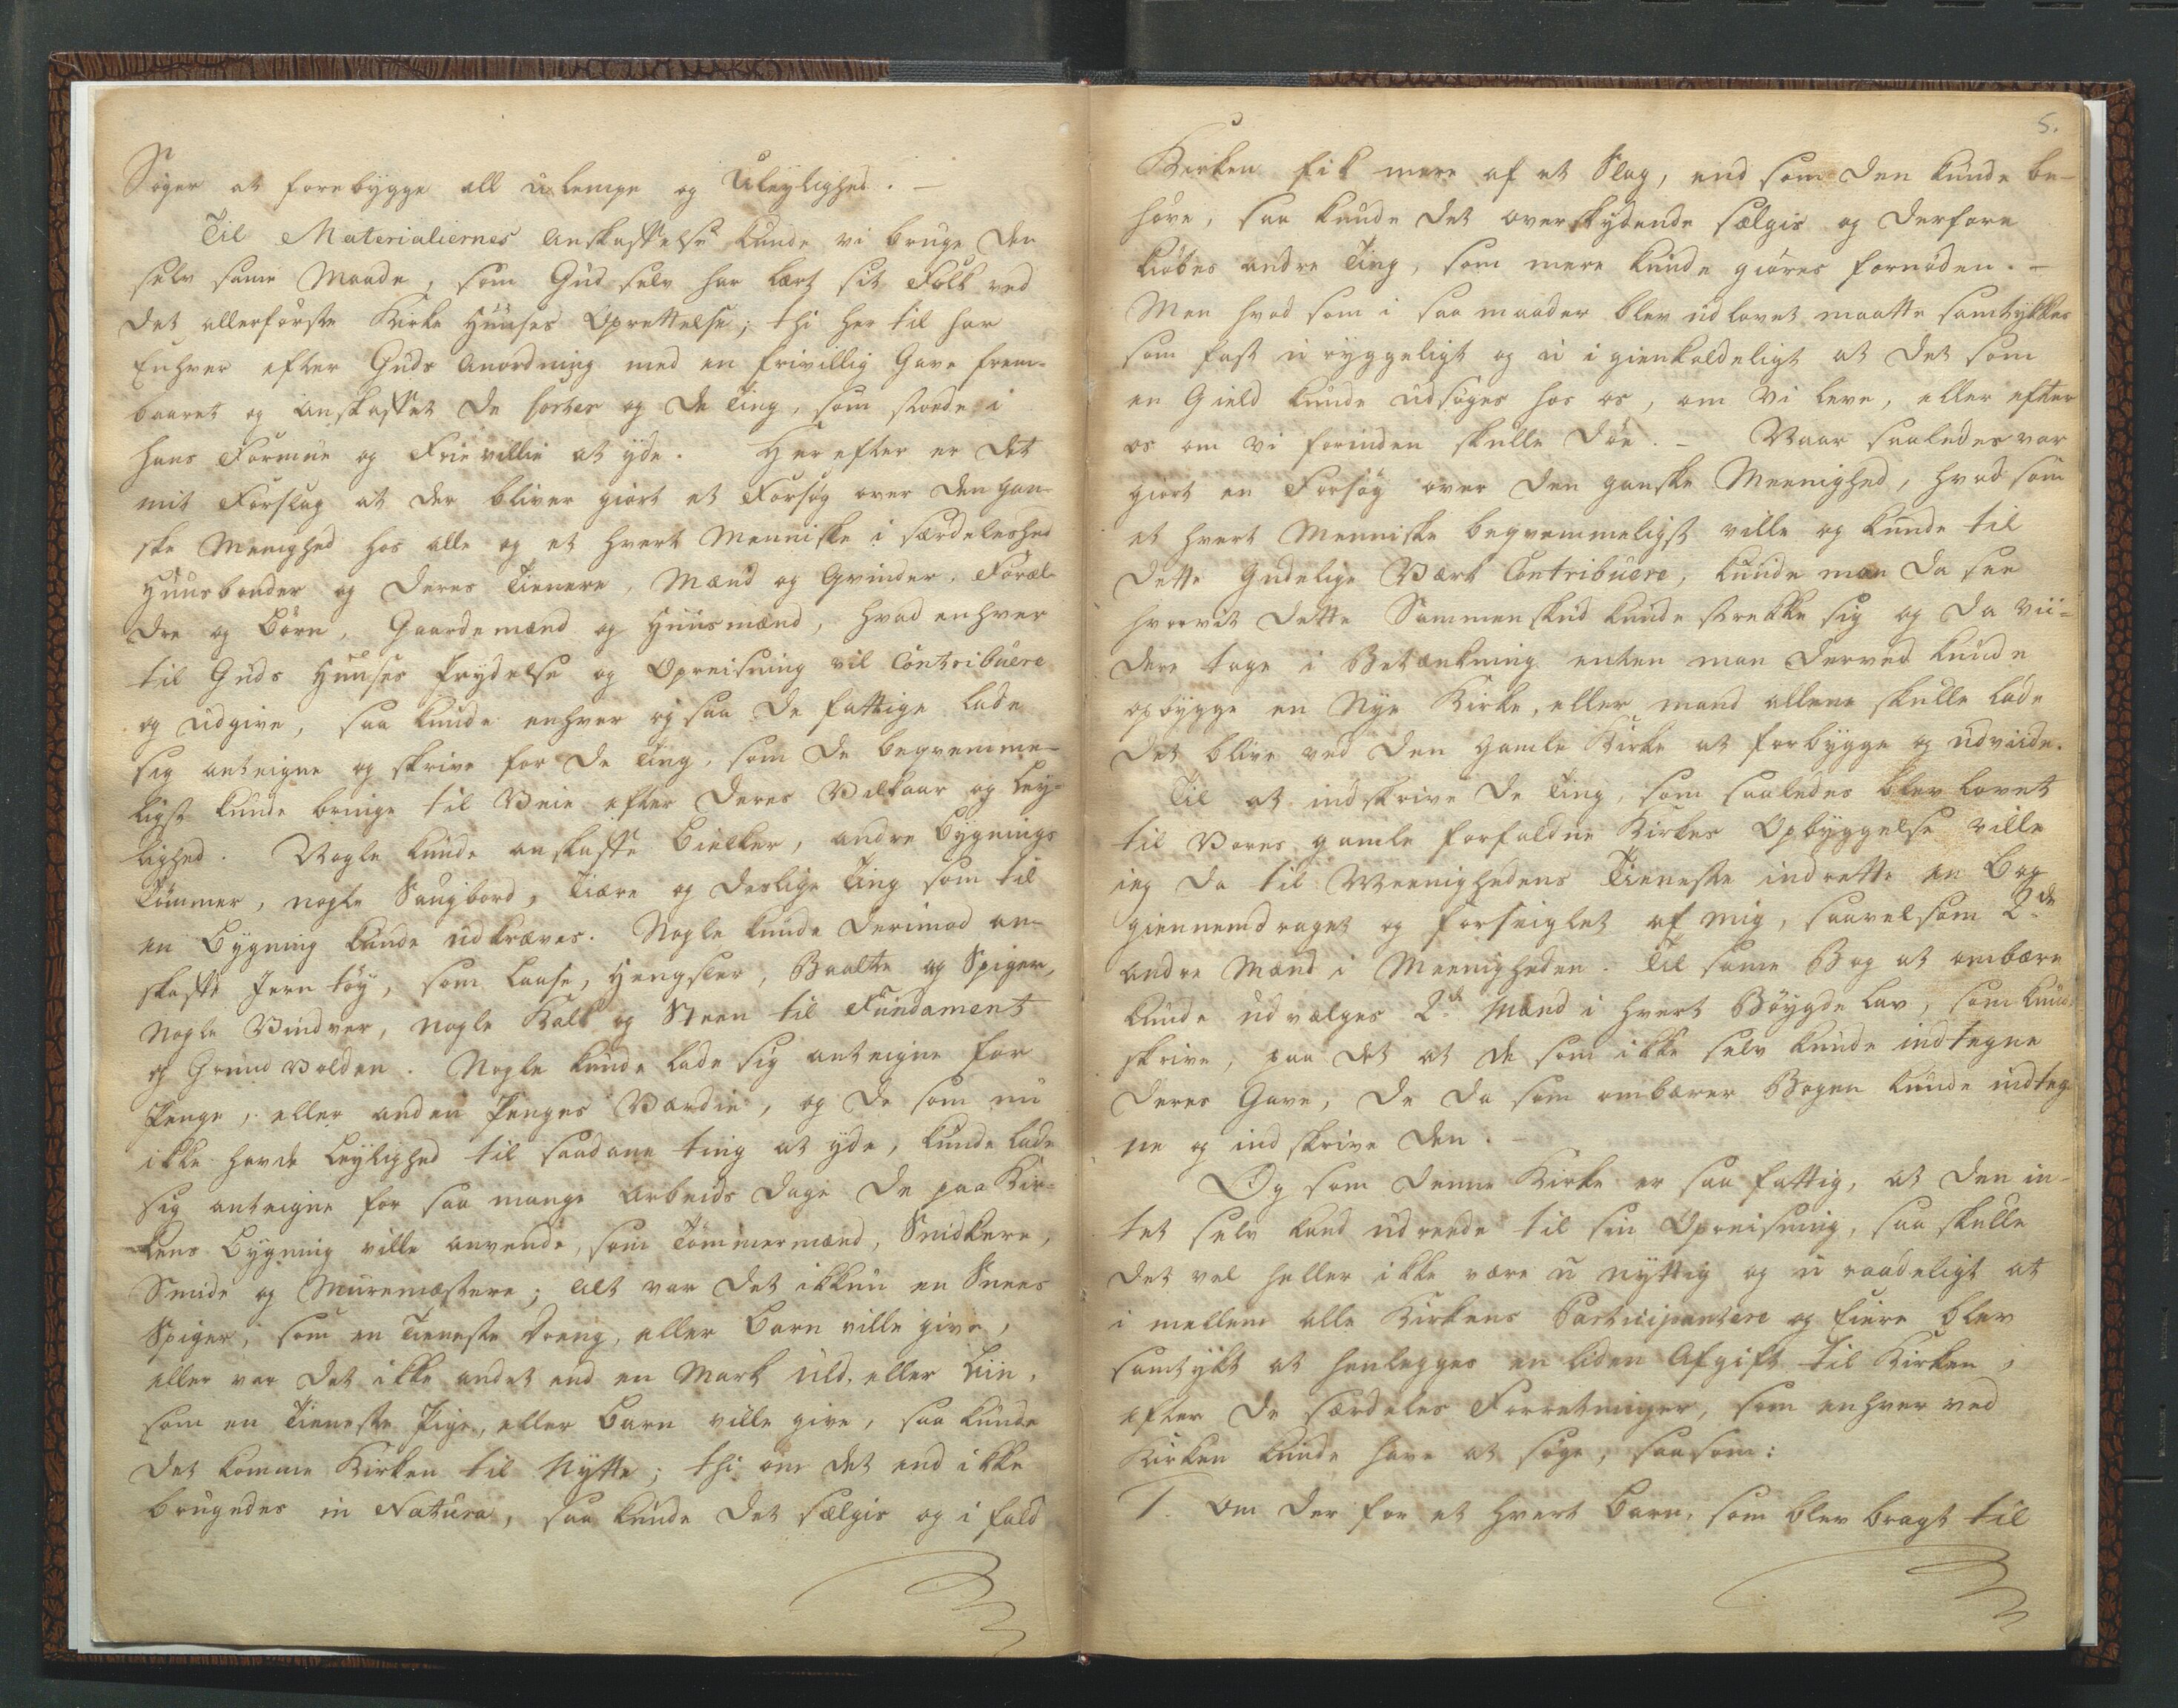 Søger at forebygge all ulempe og Uleylighed. —
Til Materialiernes Anskaffelse kunde vi bruge den
selv same Maade, som Gud selv har lært sit Folk ved
det allerførste Kirke Huuses Oprettelse; thi her til har
Enhver efter Guds Anordning med en frivillig Gave frem-
baaret og anskaffet de sorter og de Ting, som stoede i
hans Formue og Frievillie at yde. Her efter er det
mit Forslag at der bliver giort et Forsøg over den gan-
ske Menighed hos alle og et hvert Menniske i særdeleshed
Huusbonder og deres Tienere, Mænd og Qvinder, Foræl-
dre og Børn, Gaardemænd og Huusmænd, hvad enhver
til Guds Huuses Prydelse og Opreisning vil Contribuere
og udgive, saa kunde enhver og saa de fattige lade
sig anteigne og skrive for de Ting, som de beqvemme-
ligst kunde bringe til Veie efter deres Vilkaar og Ley-
lighed. Nogle kunde anskaffe Bielker, andre Bygnings
Tømmer, nogle Saugbord, Tiære og deslige Ting som til
en Bygning kunde udkræves. Nogle kunde derimod an-
skaffe Jern tøy, som Laase, Hengsler, Baalte og Spiger,
Nogle Vindver, nogle Kalk og Steen til Fundament
og Grund Volden. Nogle kunde lade sig anteigne for
Penge, eller anden Penges Værdie, og de som nu
ikke havde Leylighed til saadane ting at yde, kunde lade
sig anteigne for saa mange Arbeids Dage de paa Kir-
kens Bygning ville anvende, som Tømmermænd, Snidkere,
Smide og Muremæstere; Alt var det ikkun en Snees
Spiger, som en Tieneste Dreng, eller Barn ville give,
eller var det ikke andet end en Mark Uld, eller Liin,
som en Tieneste Pige, eller Barn ville give, saa kunde
det komme Kirken til Nytte; thi om det end ikke
brugedes in Natura, saa kunde det sælgis og i fald
5.
Kirken fik mere af et Slag, end som den kunde be-
høve, saa kunde det overskydende sælgis og derfore
kiøbes andre Ting, som mere kunde giøres fornøden. —
Men hvad som i saa maader blev udlovet maatte samtykkes
som fast u ryggeligt og u igienkaldeligt at det som
en Gield kunde udsøges hos os, om Vi leve, eller efter
os om vi forinden skulle døe. — Naar saaledes var
giort en Forsøg over den ganske Meenighed, hvad som
et hvert Menniske beqvemmeligst ville og kunde til
dette Gudelige Værk Contribuere, kunde man da see
hvorvit dette Sammenskud kunde strekke sig og da vii-
dere tage i Betænkning enten man derved kunde
opbygge en Nye Kirke, eller mand allene skulle lade
det blive ved den Gamle Kirke at forbygge og udviide.
Til at indskrive de Ting, som saaledes blev lovet
til Vores gamle forfaldne Kirkes Opbyggelse ville
ieg da til Meenighedens Tieneste indrette en Bog
giennemdraget og forseiglet af mig, saavelsom 2de
andre Mænd i Meenigheden. Til same Bog at ombære
kunde udvælges 2de Mænd i hvert Bøygde Lav, som kunde
skrive, paa det at de som ikke selv kunde indtegne
deres Gave, de da som ombærer Bogen kunde indteg-
ne og indskrive den. —
Og som denne Kirke er saa fattig, at den in-
tet selv kand udreede til sin Opreisning, saa skulle
det vel heller ikke være u nyttig og u raadeligt at
i mellem alle Kirkens Participantere og Eiere blev
samtykt at henlegges en liden Afgift til Kirken,
efter de særdeles Forretninger, som enhver ved
Kirken kunde have at søge, saasom:
1. Om der for et hvert Barn, som blev bragt til